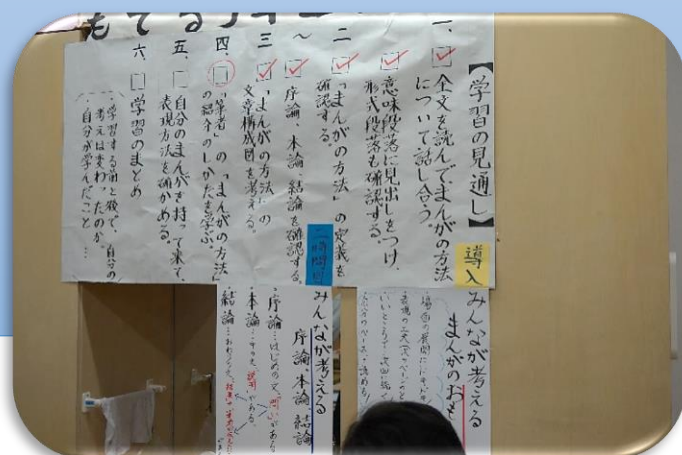 【学習の見通し】
一、
全文を読んでまんがの方法
について話し合う。
意味段落に見出しをつけ、
形式段落も確認する。
二
「まんがの方法」の定義を
確認する。
〜
序論、本論、結論を確認する。
三
「まんがの方法」の
文章構成図を考える。
四
「筆者」の「まんがの方法」
の紹介のしかたを学ぶ。
五、
自分のまんがを持って来て、
表現方法を確かめる。
六、
学習のまとめ
・学習する前と後で、自分の
考えは変わったのか。
・自分が学んだこと…
導入
みんなが考える
まんがのおも
二時間目
みんなが考える
序論、本論、結論
・序論…はじめの文、「問い」がある
・本論
・結論